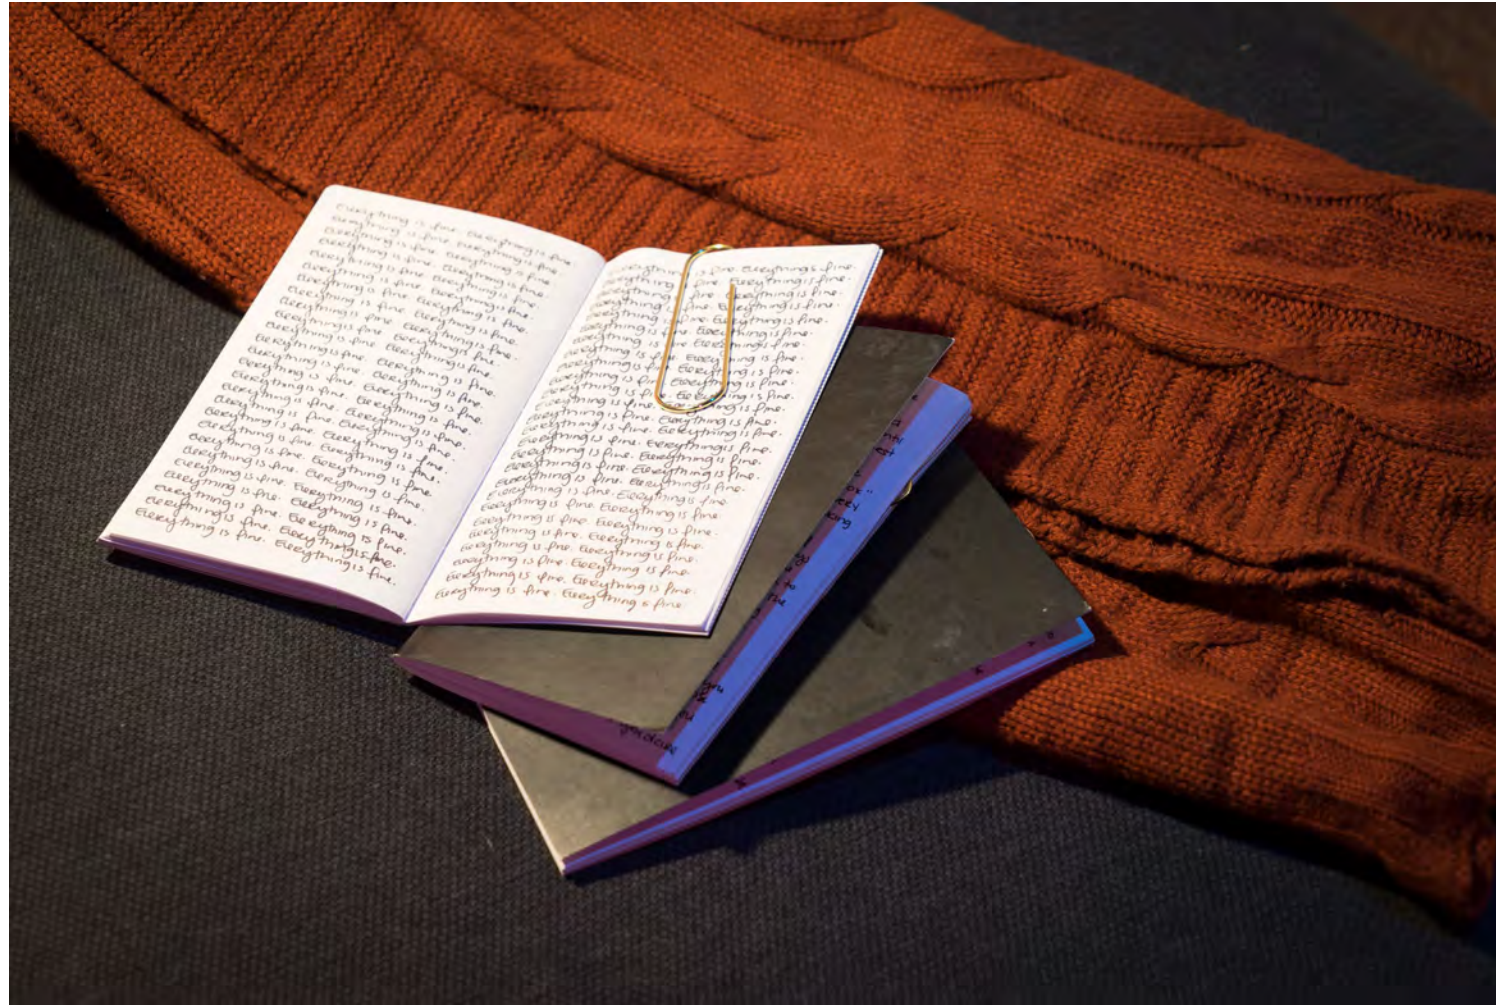 Everything is fine. Everything is fine.
Everything is fine. Everything is fine.
Everything is fine. Everything is fine.
Everything is fine. Everything is fine.
Everything is fine. Everything is fine.
Everything is fine. Everything is fine.
Everything is fine. Everything is fine.
Everything is fine. Everything is fine.
Everything is fine. Everything is fine.
Everything is fine. Everything is fine.
Everything is fine. Everything is fine.
Everything is fine. Everything is fine.
Everything is fine. Everything is fine.
Everything is fine. Everything is fine.
Everything is fine. Everything is fine.
Everything is fine. Everything is fine.
Everything is fine. Everything is fine.
Everything is fine. Everything is fine.
Everything is fine. Everything is fine.
Everything is fine. Everything is fine.
Everything is fine. Everything is fine.
Everything is fine. Everything is fine.
Everything is fine. Everything is fine.
Everything is fine. Everything is fine.
Everything is fine. Everything is fine.
Everything is fine. Everything is fine.
Everything is fine. Everything is fine.
Everything is fine. Everything is fine.
Everything is fine. Everything is fine.
Everything is fine. Everything is fine.
Everything is fine. Everything is fine.
Everything is fine. Everything is fine.
Everything is fine. Everything is fine.
Everything is fine. Everything is fine.
Everything is fine. Everything is fine.
Everything is fine. Everything is fine.
Everything is fine. Everything is fine.
Everything is fine. Everything is fine.
Everything is fine. Everything is fine.
Everything is fine. Everything is fine.
Everything is fine. Everything is fine.
Everything is fine. Everything is fine.
Everything is fine. Everything is fine.
Everything is fine. Everything is fine.
Everything is fine. Everything is fine.
Everything is fine. Everything is fine.
Everything is fine. Everything is fine.
Everything is fine. Everything is fine.
Everything is fine. Everything is fine.
Everything is fine. Everything is fine.
Everything is fine. Everything is fine.
Everything is fine. Everything is fine.
Everything is fine. Everything is fine.
a
est
ox"
king
go
to
the
you